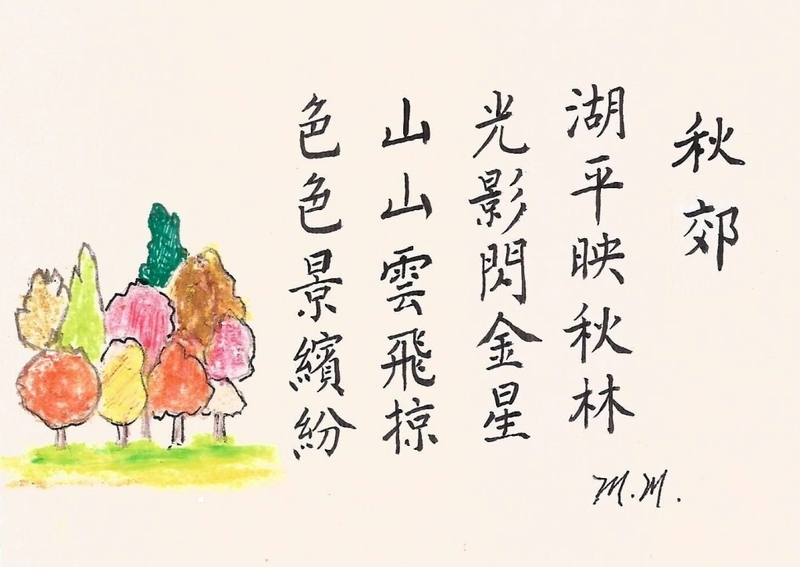 秋郊
湖平映秋林
光影閃金星
山山雲飛掠
色色景繽紛
M.M.